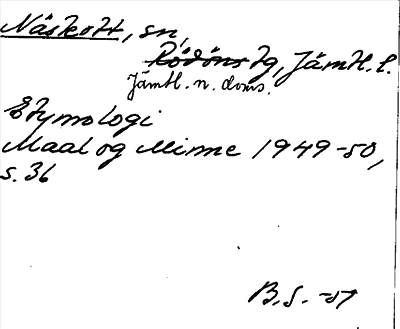 Näskott, sn,
Rödöns tg, Jämtl. l.
Jämtl. n. doms.
Etymologi
Maal og Minne 1949-50,
s. 36
B.S. -51